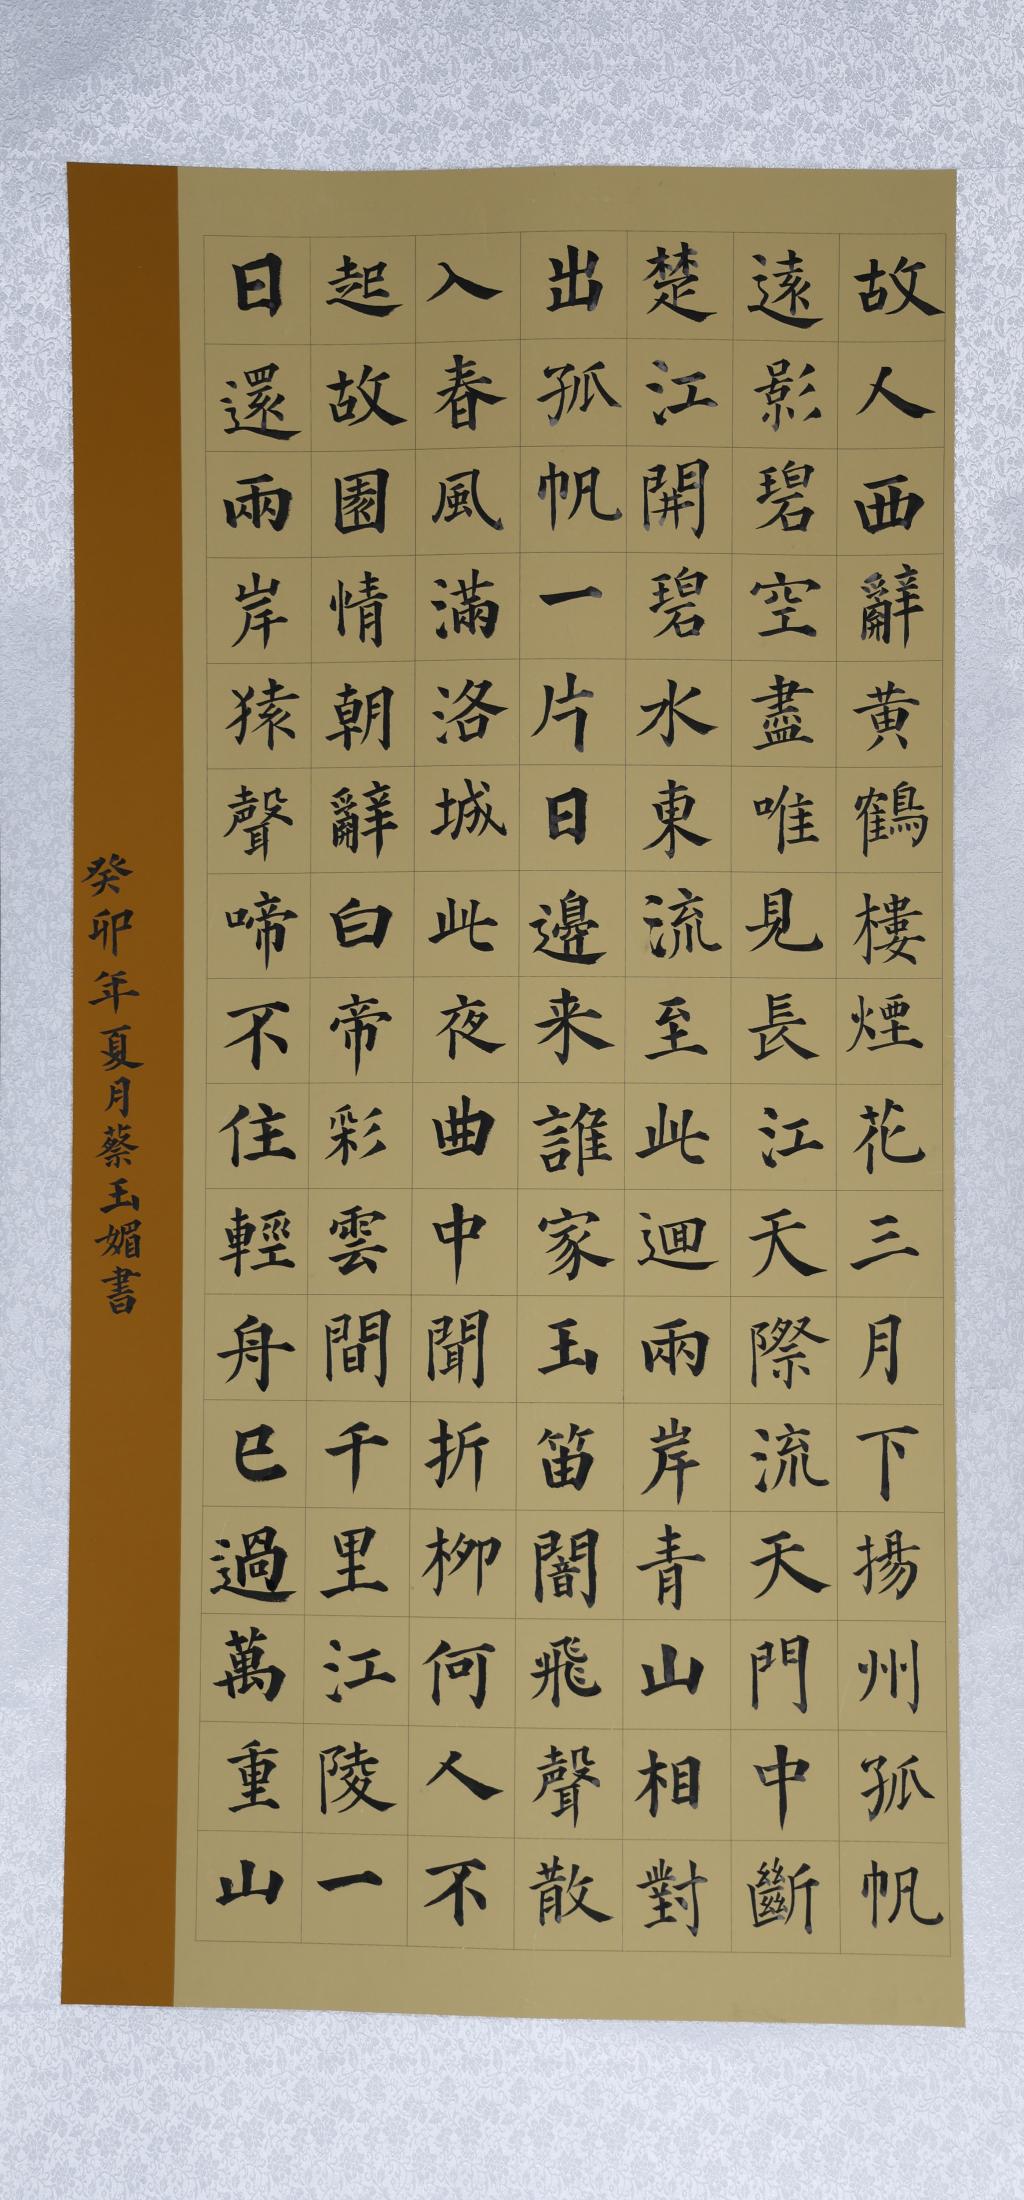 故人西辭黄鶴樓煙花三月下揚州孤帆
遠影碧空盡唯見長江天際流天門中斷
楚江開碧水東流至此迴兩岸青山相對
出孤帆一片日邊来誰家玉笛闇飛聲散
入春風滿洛城此夜曲中聞折柳何人不
起故園情朝辭白帝彩雲間千里江陵一
日還兩岸猿聲啼不住輕舟已過萬重山
癸卯年夏月蔡玉媚書